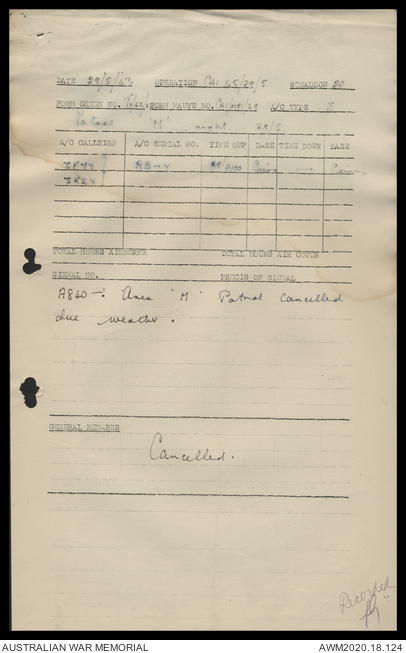 DATE 29/5/43 OPERATION CAI 45/29/5 SQUADRON 20
FORM GREEN NO. FORM MAUVE NO. A/C TYPE
Patrol 'M' night 29/5
A/C CALLSIGN A/C SERIAL NO. TIME OFF BASE TIME DOWN BASE
RB-4 Cairns
TOTAL HOURS AIRBORNE TOTAL HOURS AIR COVER
SIGNAL NO. PRECIS OF SIGNAL
Area 'M' Patrol cancelled
due weather.
GENERAL REMARKS
Cancelled.
Recorded
AUSTRALIAN WAR MEMORIAL AWM2020.18.124